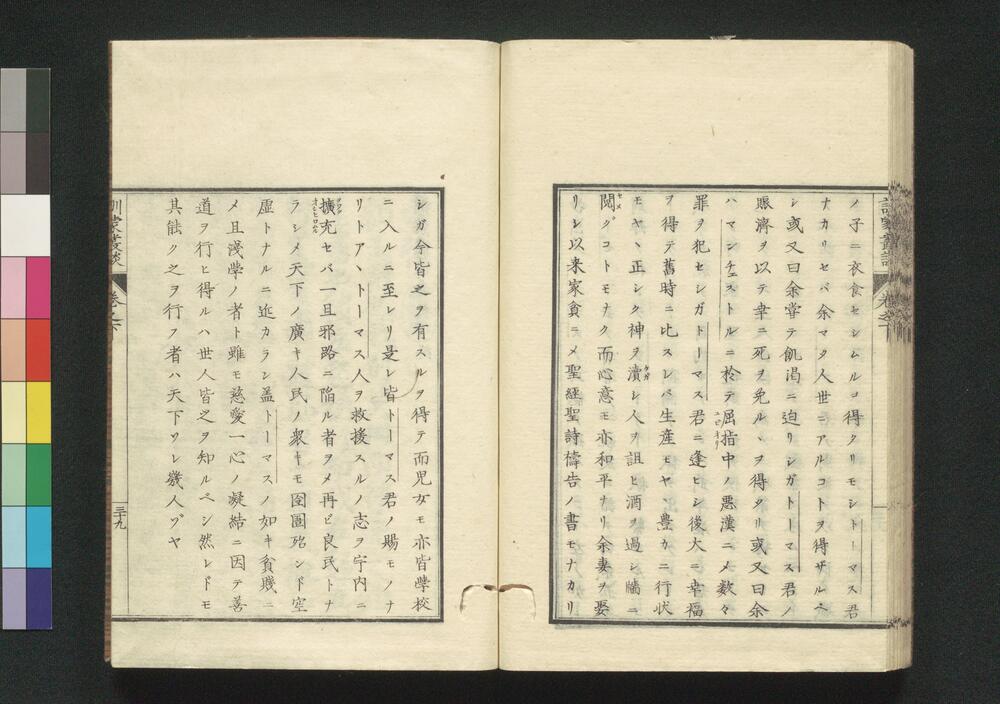 ノ子ニ衣食セシムルヿ得タリモシトーマス君
ナカリセバ余マタ人世ニアルコトヲ得ザルベ
シ或又曰余嘗テ飢渇ニ迫リシガトーマス君ノ
賑濟ヲ以テ幸ニ死ヲ免ルヽヲ得タリ或又曰余
ハマンチェストルニ於テ屈指中ノ惡漢ニメ數々
罪ヲ犯セシガトーマス君ニ逢ヒシ後大ニ幸福
ヲ得テ舊時ニ比スレバ生産モヤヽ豊カニ行状
モヤヽ正シク神ヲ瀆シ人ヲ詛ヒ酒ヲ過シ牆ニ
鬩グコトモナク而心意モ亦和平ナリ余妻ヲ娶
リシ以来家貧ニメ聖經聖詩禱告ノ書モナカリ
訓蒙叢談 卷之下
シガ今皆之ヲ有スルヲ得テ而児女モ亦皆學校
ニ入ルニ至レリ是レ皆トーマス君ノ賜モノナ
リトアヽトーマス人ヲ救援スルノ志ヲ宇内ニ
擴充セバ一旦邪路ニ陥ル者ヲメ再ビ良民トナ
ラシメ天下ノ廣キ人民ノ衆キモ囹圄殆ンド空
虚トナルニ近カラン盖トーマスノ如キ貧賤ニ
メ且淺學ノ者ト雖モ慈愛一心ノ凝結ニ因テ善
道ヲ行ヒ得ルハ世人皆之ヲ知ルベシ然レドモ
其能ク之ヲ行フ者ハ天下ソレ幾人ゾヤ
訓蒙叢談 卷之下 三十九